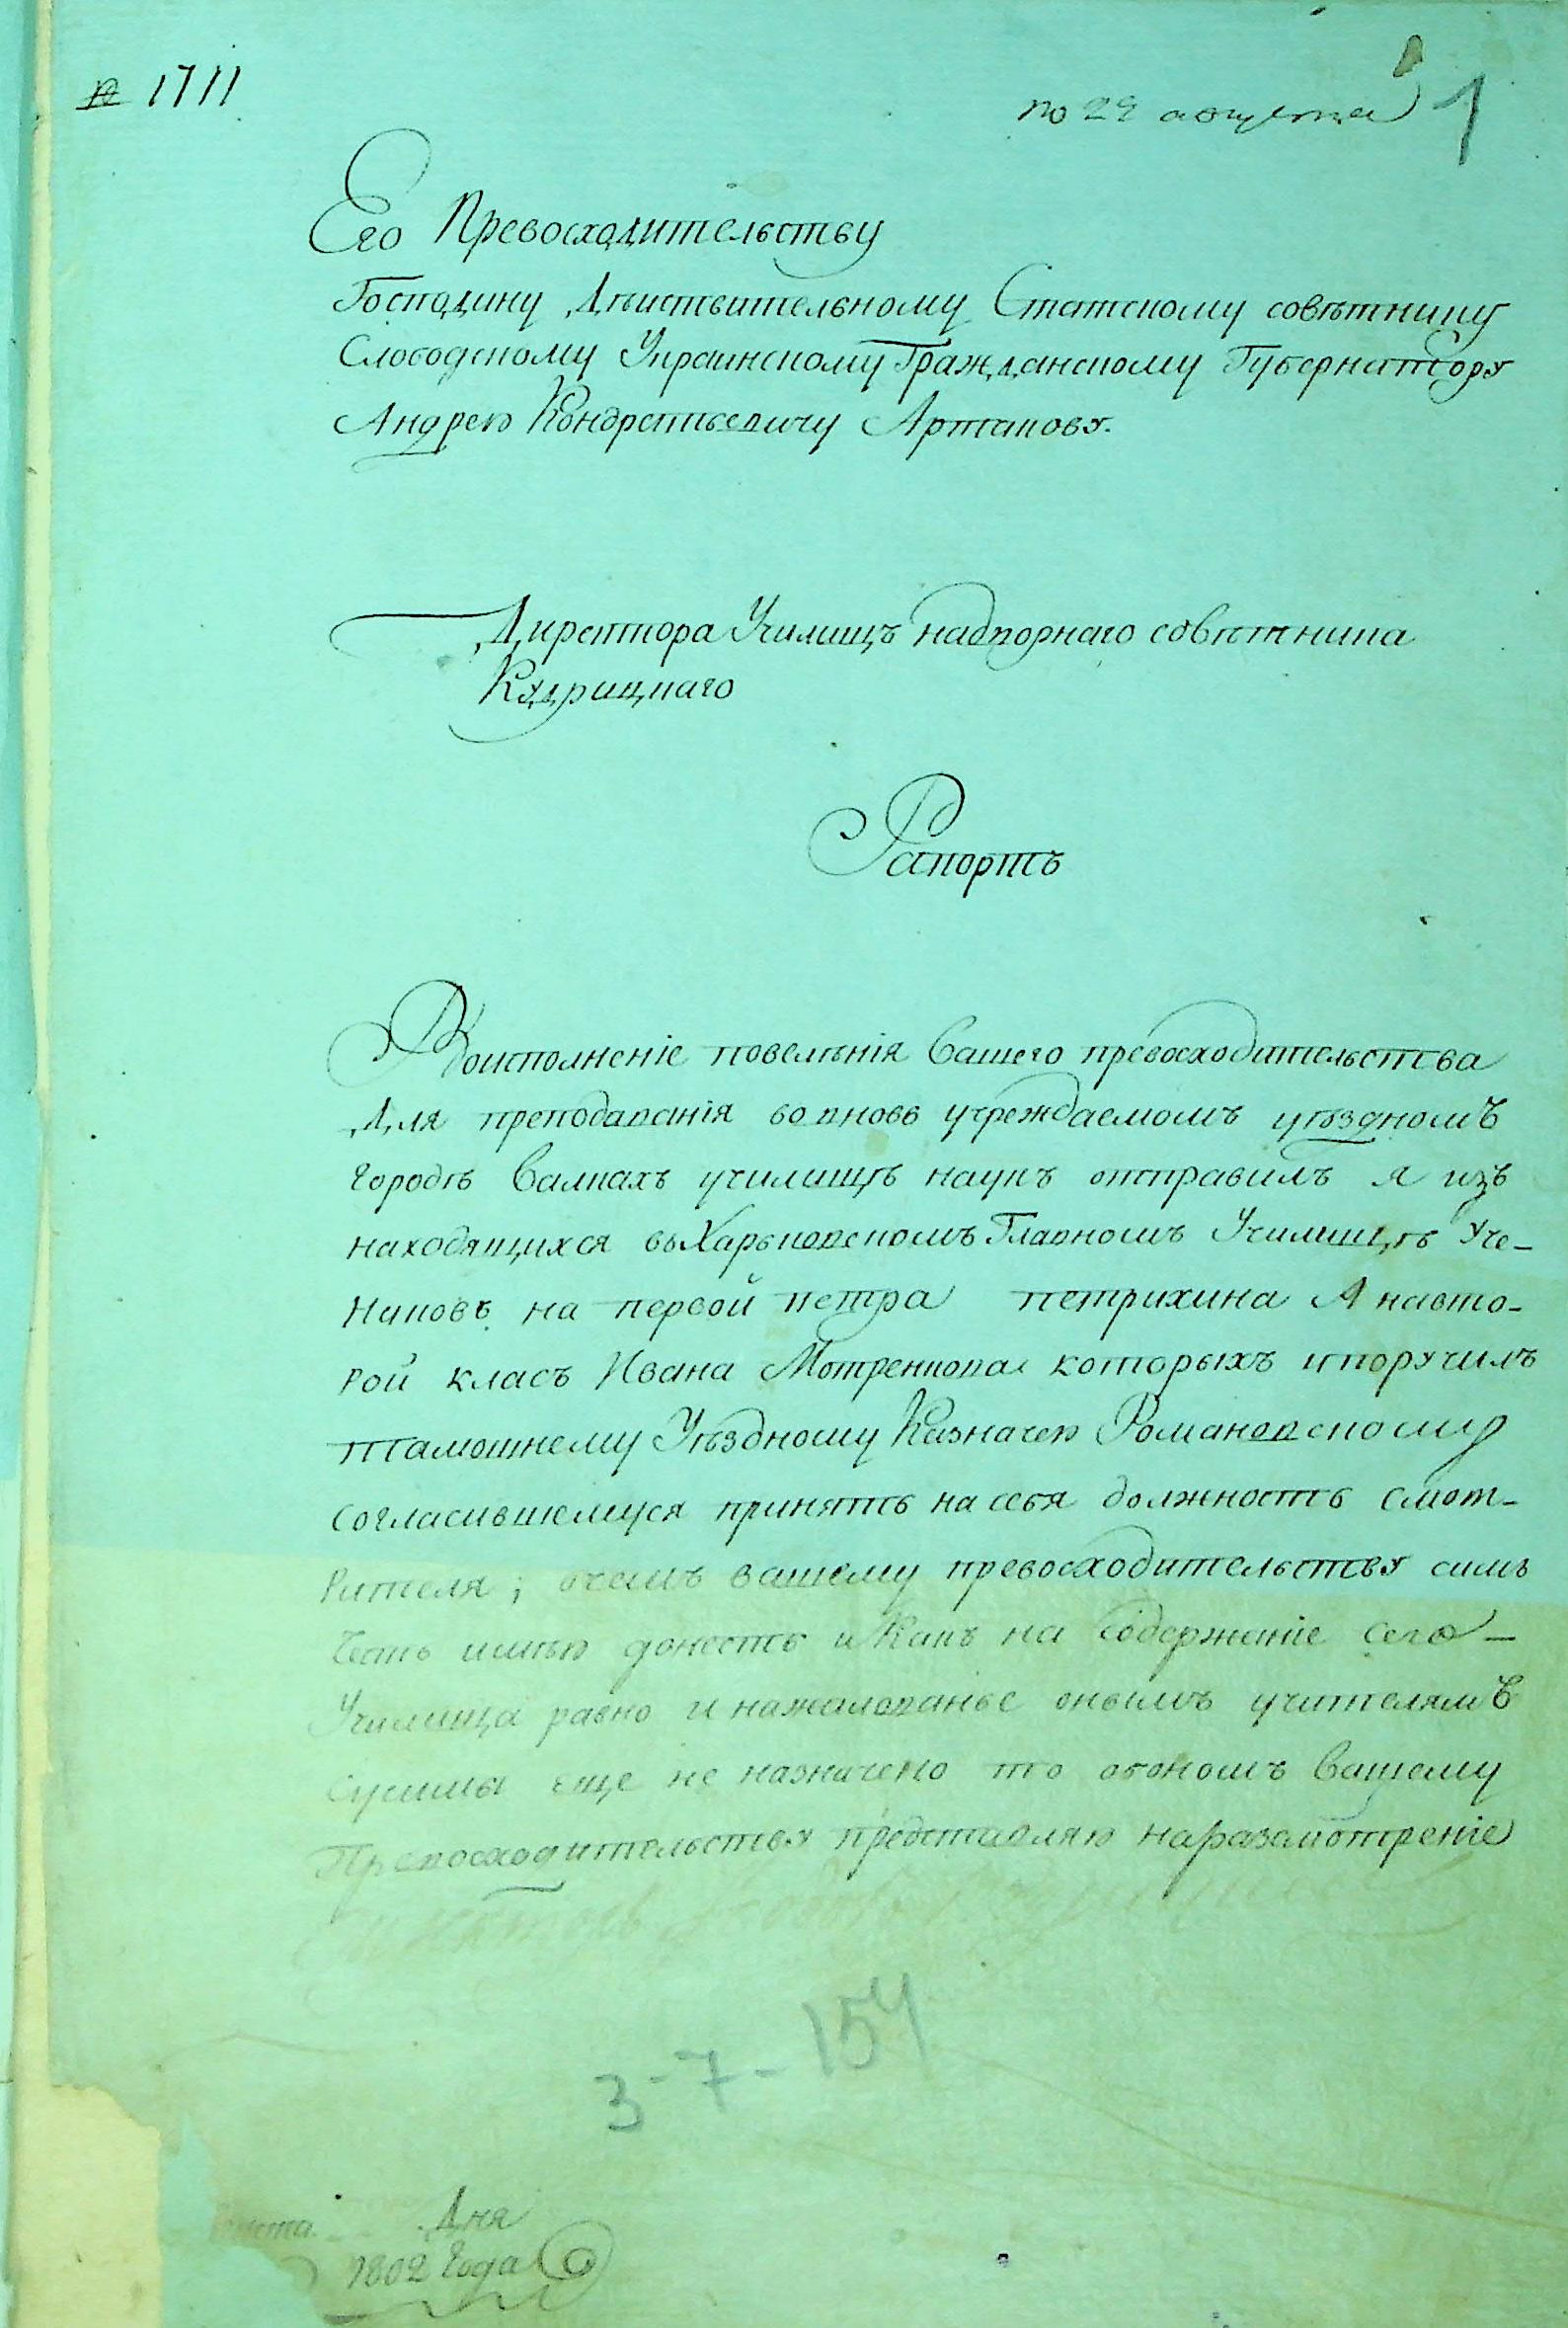 № 1711
по 29 августа 1
Его Превосходительству
Господину Дѣиствительному Статскому совѣтнику
Слободскому Украинскому Гражданскому Губернатору
Андрею Кондратьевичу Артакову.
Директора Училищъ надворнаго совѣтника
Кудрицкаго
Рапортъ
Воисполненіе повелѣнія Вашего превосходительства
Для преподаванія во вновь учреждаемомъ уѣздномъ
городѣ Валкахъ училищѣ наукъ отправилъ я изъ
находящихся въ Харьковскомъ Главномъ Училищѣ Уче-
никовъ на первой петра петрихина А навто-
рой класъ Ивана Мотренкова которыхъ ипоручилъ
тамошнему Уѣздному Казначею Романовскому
согласившемуся принять на себя должность смот-
рителя; очемъ вашему превосходительству симъ
Честь имѣю донесть и Какъ на Содержаніе сего
Училища равно и нажалованье онымъ учителямъ
суммы еще не назначено то обономъ Вашему
Превосходительству представляю наразсмотреніе
3-7-154
Дня
1802 Года